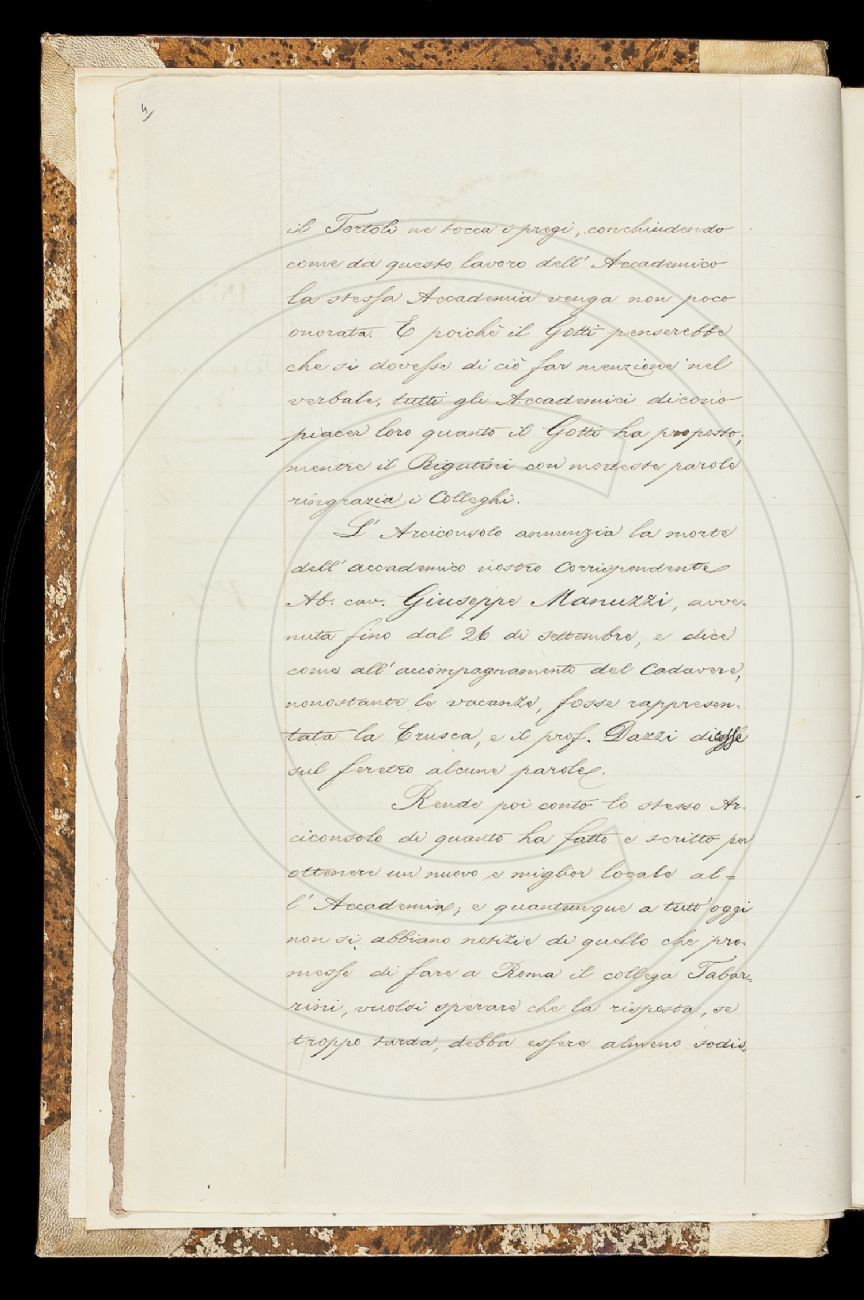 4
il Tortoli ne tocca i pregi, conchiudendo
come da questo lavoro dell' Accademico
la stessa Accademia venga non poco
onorata. E poichè il Gotti penserebbe
che si dovesse di ciò far menzione nel
verbale, tutti gli Accademici dicono
piacer loro quanto il Gotti ha proposto;
mentre il Rigutini con modeste parole
ringrazia i Colleghi.
L' Arciconsolo annunzia la morte
dell' accademico nostro Corrispondente
Ab. cav. Giuseppe Manuzzi, avve-
nuta fino dal 26 di settembre, e dice
come all' accompagnamento del Cadavere,
nonostante le vacanze, fosse rappresen-
tata la Crusca, e il prof. Dazzi dicesse
sul feretro alcune parole.
Rende poi conto lo stesso Ar-
ciconsolo di quanto ha fatto e scritto per
ottenere un nuovo e miglior locale al=
l' Accademia; e quantunque a tutt'oggi
non si abbiano notizie di quello che pro-
messe di fare a Roma il collega Tabar-
rini, vuolsi sperare che la risposta, se
troppo tarda, debba essere almeno sodis-